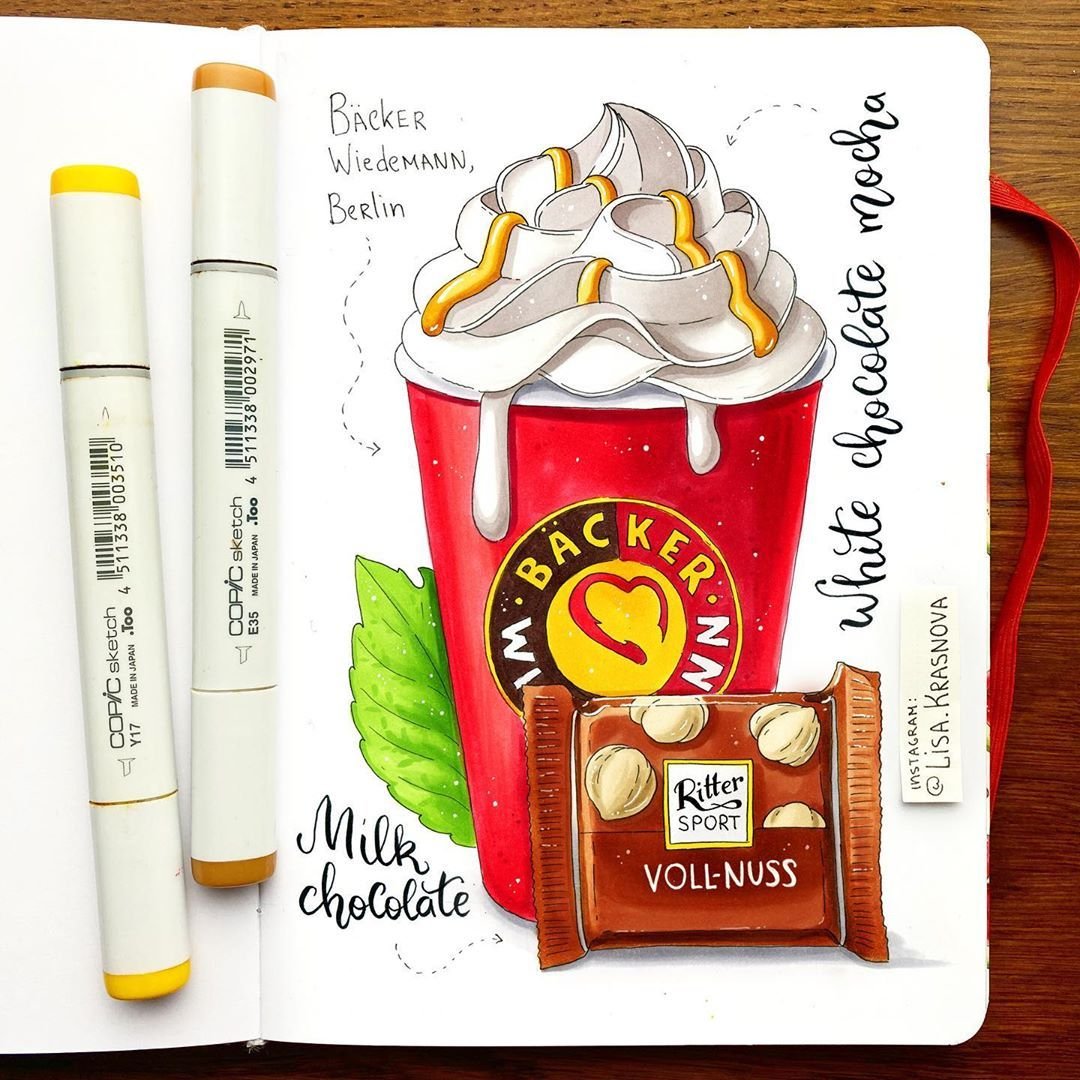 BÄCKER
WIEDEMANN,
BERLIN
White chocolate mocha
WI · BÄCKER · NN
Ritter
SPORT
VOLL-NUSS
Milk
chocolate
INSTAGRAM:
@LISA.KRASNOVA
COPIC sketch
Y17 MADE IN JAPAN .Too
4 511338 003510
COPIC sketch
E35 MADE IN JAPAN .Too
4 511338 002971